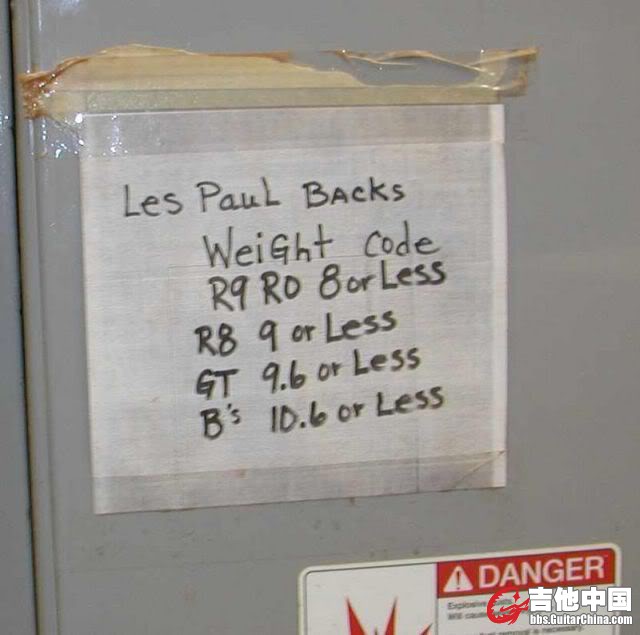 Les Paul Backs
Weight Code
R9 R0 8 or Less
R8 9 or Less
GT 9.6 or Less
B's 10.6 or Less
DANGER
Explosive
Will cause
is necessary
吉他中国
bbs.GuitarChina.com